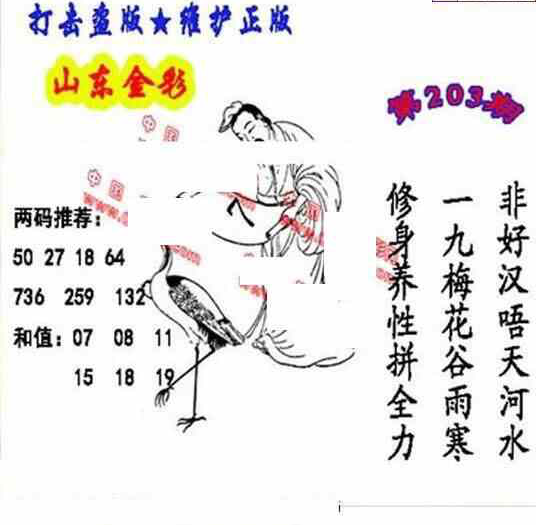 打击盗版★维护正版
山东金彩
第203期
中国
www.c
中国
www.c
com
两码推荐：
50 27 18 64
736 259 132
和值：07 08 11
15 18 19
非好汉唔天河水
一九梅花谷雨寒
修身养性拼全力